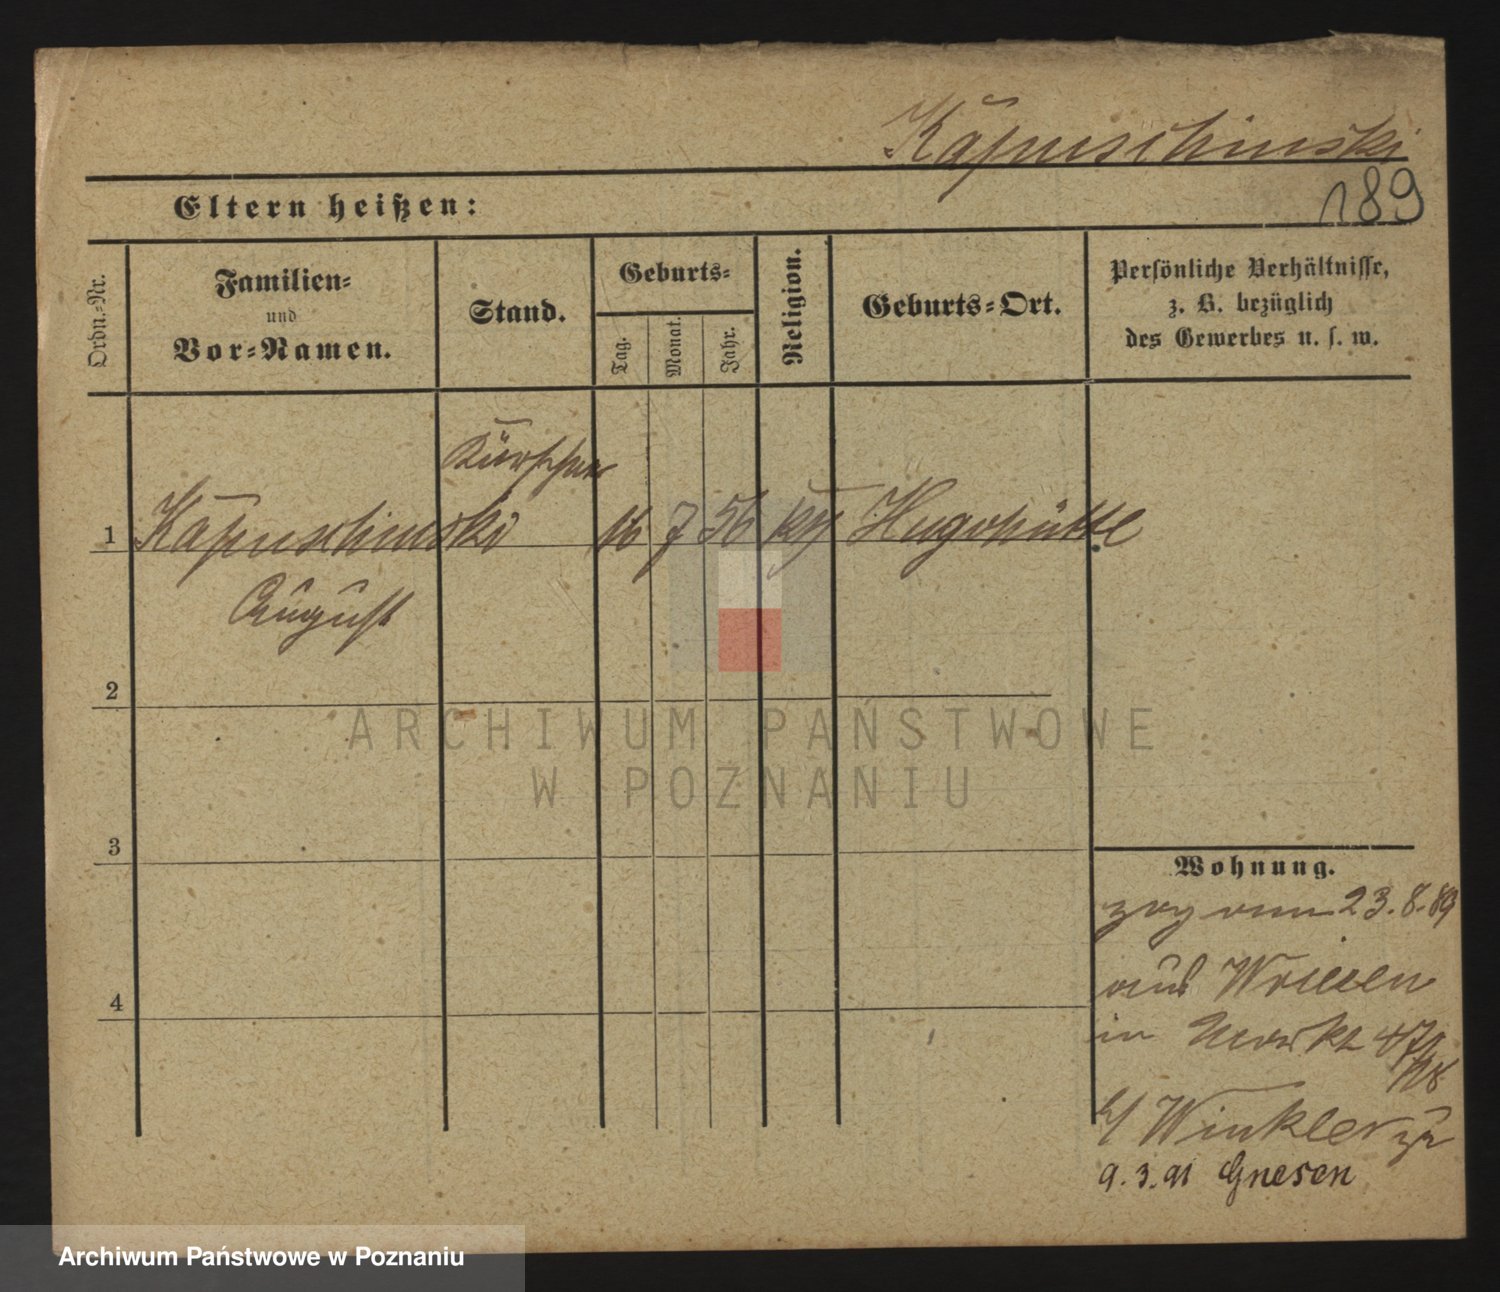 Kapuschinski
189
Eltern heißen:
Ordn.-Nr.
Familien-
und
Vor-Namen.
Stand.
Geburts-
Tag.
Monat.
Jahr.
Religion.
Geburts-Ort.
Persönliche Verhältnisse,
z. B. bezüglich
des Gewerbes u. s. w.
Kürschner
1 Kapuschinski 16 7 56 Hugohütte
August
2
3
4
ARCHIWUM PAŃSTWOWE
W POZNANIU
Wohnung.
zog am 23.8.89
aus Wriezen
in Markt
b/ Winkler zu
9.3.91 Gnesen
Archiwum Państwowe w Poznaniu